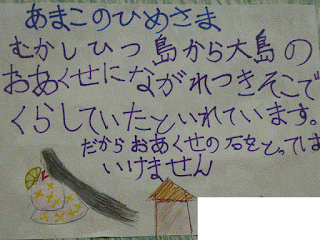 あまこのひめさま
むかしひつ島から大島の
おあくせにながれつきそこで
くらしていたといれています。
だからおあくせの石をとっては
いけません